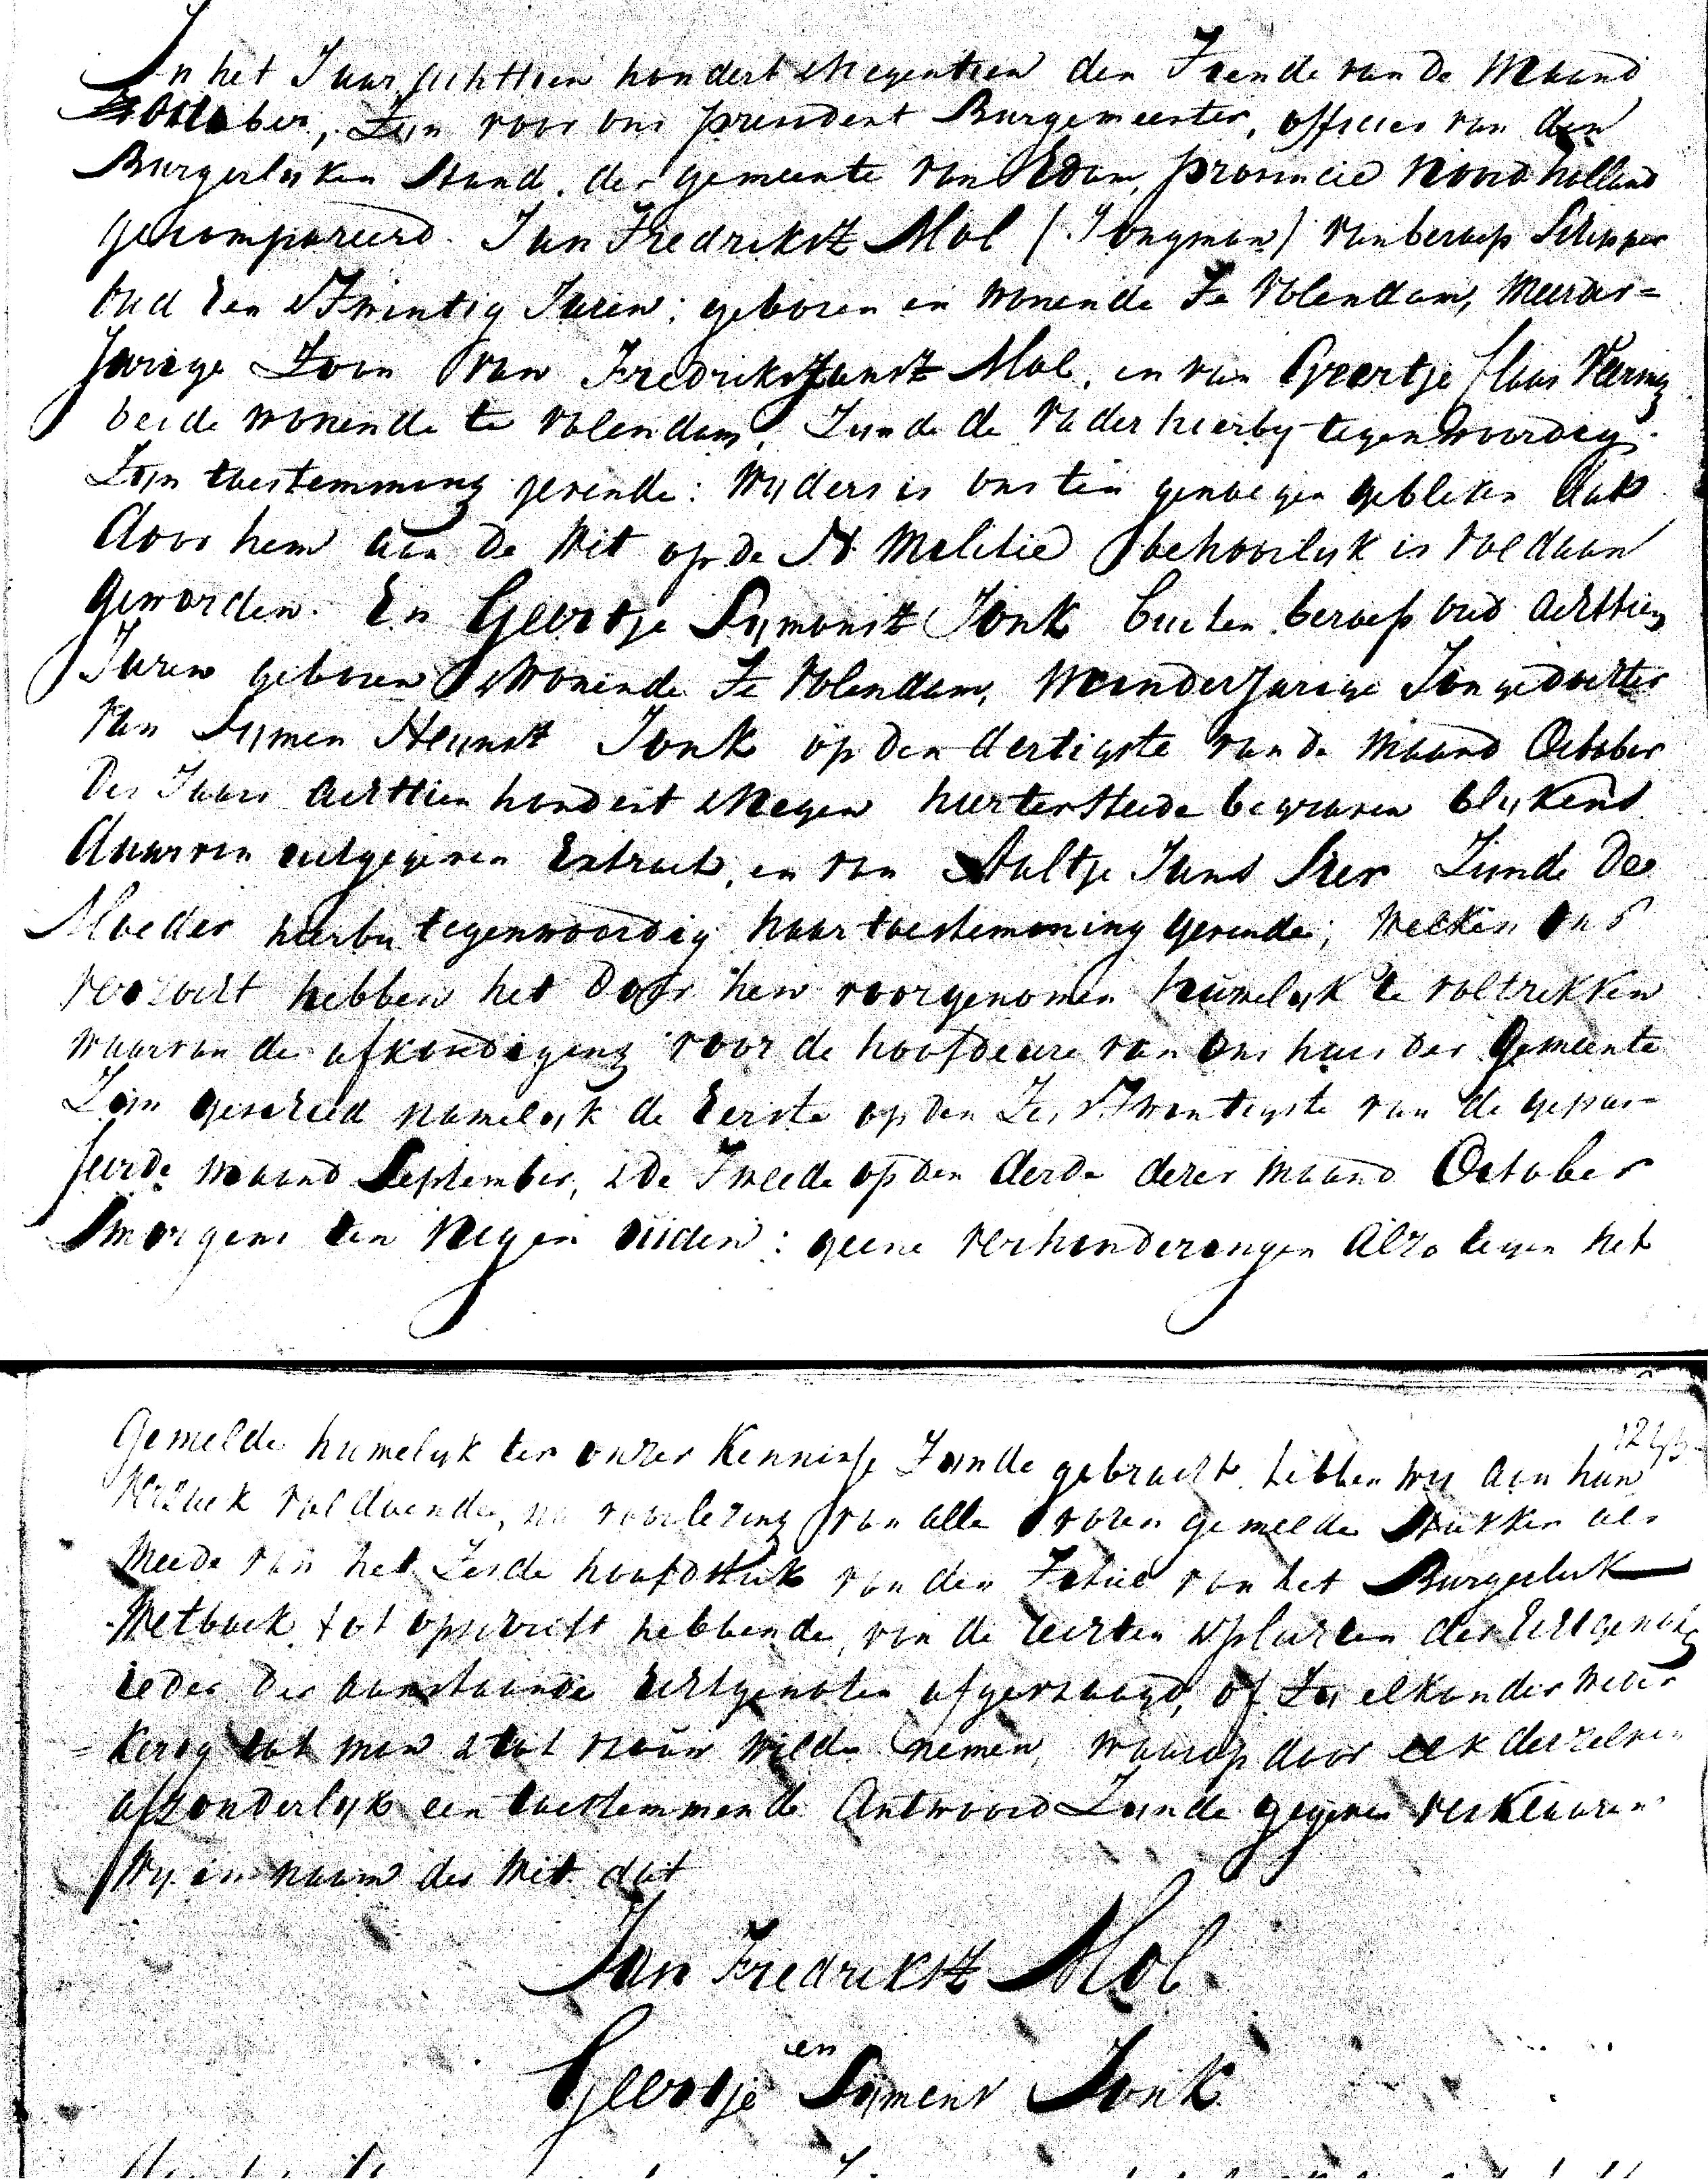 In het Jaar achttien hondert & Negentien den Tiende van de Maand
October, Zijn voor ons president Burgemeester, officier van den
Burgerlijken Stand. der gemeente van Edam, provincie Noord holland
gecompareerd. Jan Fredrikstz Mol (Jongman) van beroep Schipper
Oud Een & Twintig Jaren; geboren en wonende Te Volendam, Meerder=
Jarige Zoon van Fredrik Janstz Mol, en van Geertje Claas Veering
beide wonende te Volendam, Zijnde de Vader hierby tegenwoordig
Zyn toestemming gevende: Wyders is ons ten genoegen gebleken dat
door hem aan de Wet op de N Melitie behoorlijk is Voldaan
Geworden. En Geertje Symonstz Jonk buiten beroep oud achttien
Jaren geboren & Wonende Te Volendam, Meinderjarige Jongedochter
Van Symen Heijnstz Jonk op den dertigste van de Maand October
Des Jaars achttien hondert & Negen hier ter Steede begraven blykend
daarvan uitgegeven Extract, en van Aaltje Jans Sier Zijnde De
Moeder hierby tegenwoordig haar toestemming gevende; Welken Ons
verzocht hebben het door hen voorgenomen huwelijk te voltrekken
waarvan de afkondiging voor de hoofdeure van Ons huis der Gemeente
Zijn geschied namelijk de Eerste op den Zes & Twentigste van de gepas=
seerde maand September, & de Tweede op den derde dezer Maand October
Smorgens ten Negen uuren: geene verhinderingen Alzo tegen het
Gemelde huwelijk ter onzer Kennisse Zijnde gebracht hebben wy aan hun
Verzoek Voldoende, na voorlezing van alle voren gemelde Stukken als
Meede van het Zesde hoofdstuk van den Titul van het Burgerlijk
Wetboek, tot opschrift hebbende, van de rechten & plichten der Echtgenoten
ieder der aanstaande Echtgenoten afgevraagd, of Zy elkander weder
= kerig tot man & tot vrouw wilden nemen, waarop door elk derzelven
afzonderlijk een toestemmende Antwoord Zijnde gegeven verklaaren
Wy in naam der Wet dat
Jan Fredrikstz Mol
en
Geertje Symens Jonk